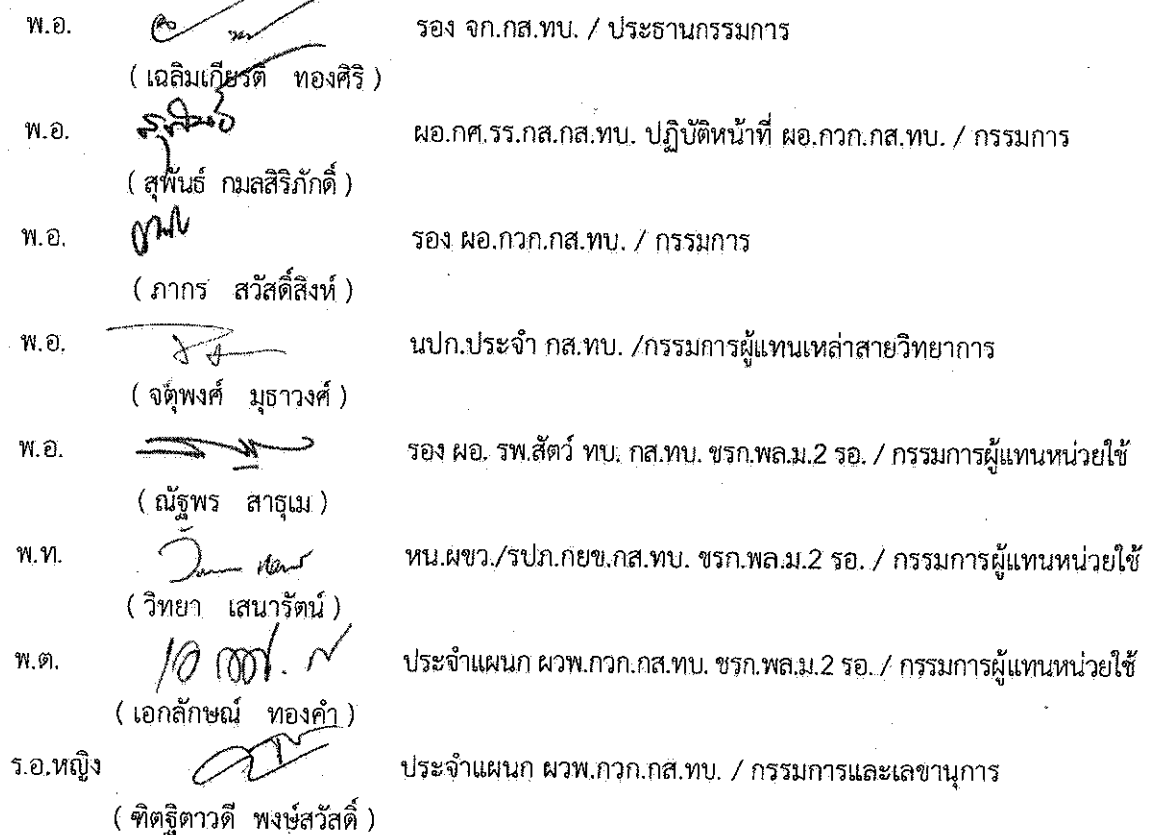 พ.อ. รอง จก.กส.ทบ. / ประธานกรรมการ
( เฉลิมเกียรติ ทองศิริ )
พ.อ. ผอ.กศ.รร.กส.กส.ทบ. ปฏิบัติหน้าที่ ผอ.กวก.กส.ทบ. / กรรมการ
( สุพันธ์ กมลสิริภักดิ์ )
พ.อ. รอง ผอ.กวก.กส.ทบ. / กรรมการ
( ภากร สวัสดิ์สิงห์ )
พ.อ. นปก.ประจำ กส.ทบ. /กรรมการผู้แทนเหล่าสายวิทยาการ
( จตุพงศ์ มุธาวงศ์ )
พ.อ. รอง ผอ. รพ.สัตว์ ทบ. กส.ทบ. ชรก.พล.ม.2 รอ. / กรรมการผู้แทนหน่วยใช้
( ณัฐพร สาธุเม )
พ.ท. หน.ผขว./รปภ.กยข.กส.ทบ. ชรก.พล.ม.2 รอ. / กรรมการผู้แทนหน่วยใช้
( วิทยา เสนารัตน์ )
พ.ต. ประจำแผนก ผวพ.กวก.กส.ทบ. ชรก.พล.ม.2 รอ. / กรรมการผู้แทนหน่วยใช้
( เอกลักษณ์ ทองคำ )
ร.อ.หญิง ประจำแผนก ผวพ.กวก.กส.ทบ. / กรรมการและเลขานุการ
( ฑิตฐิตาวดี พงษ์สวัสดิ์ )